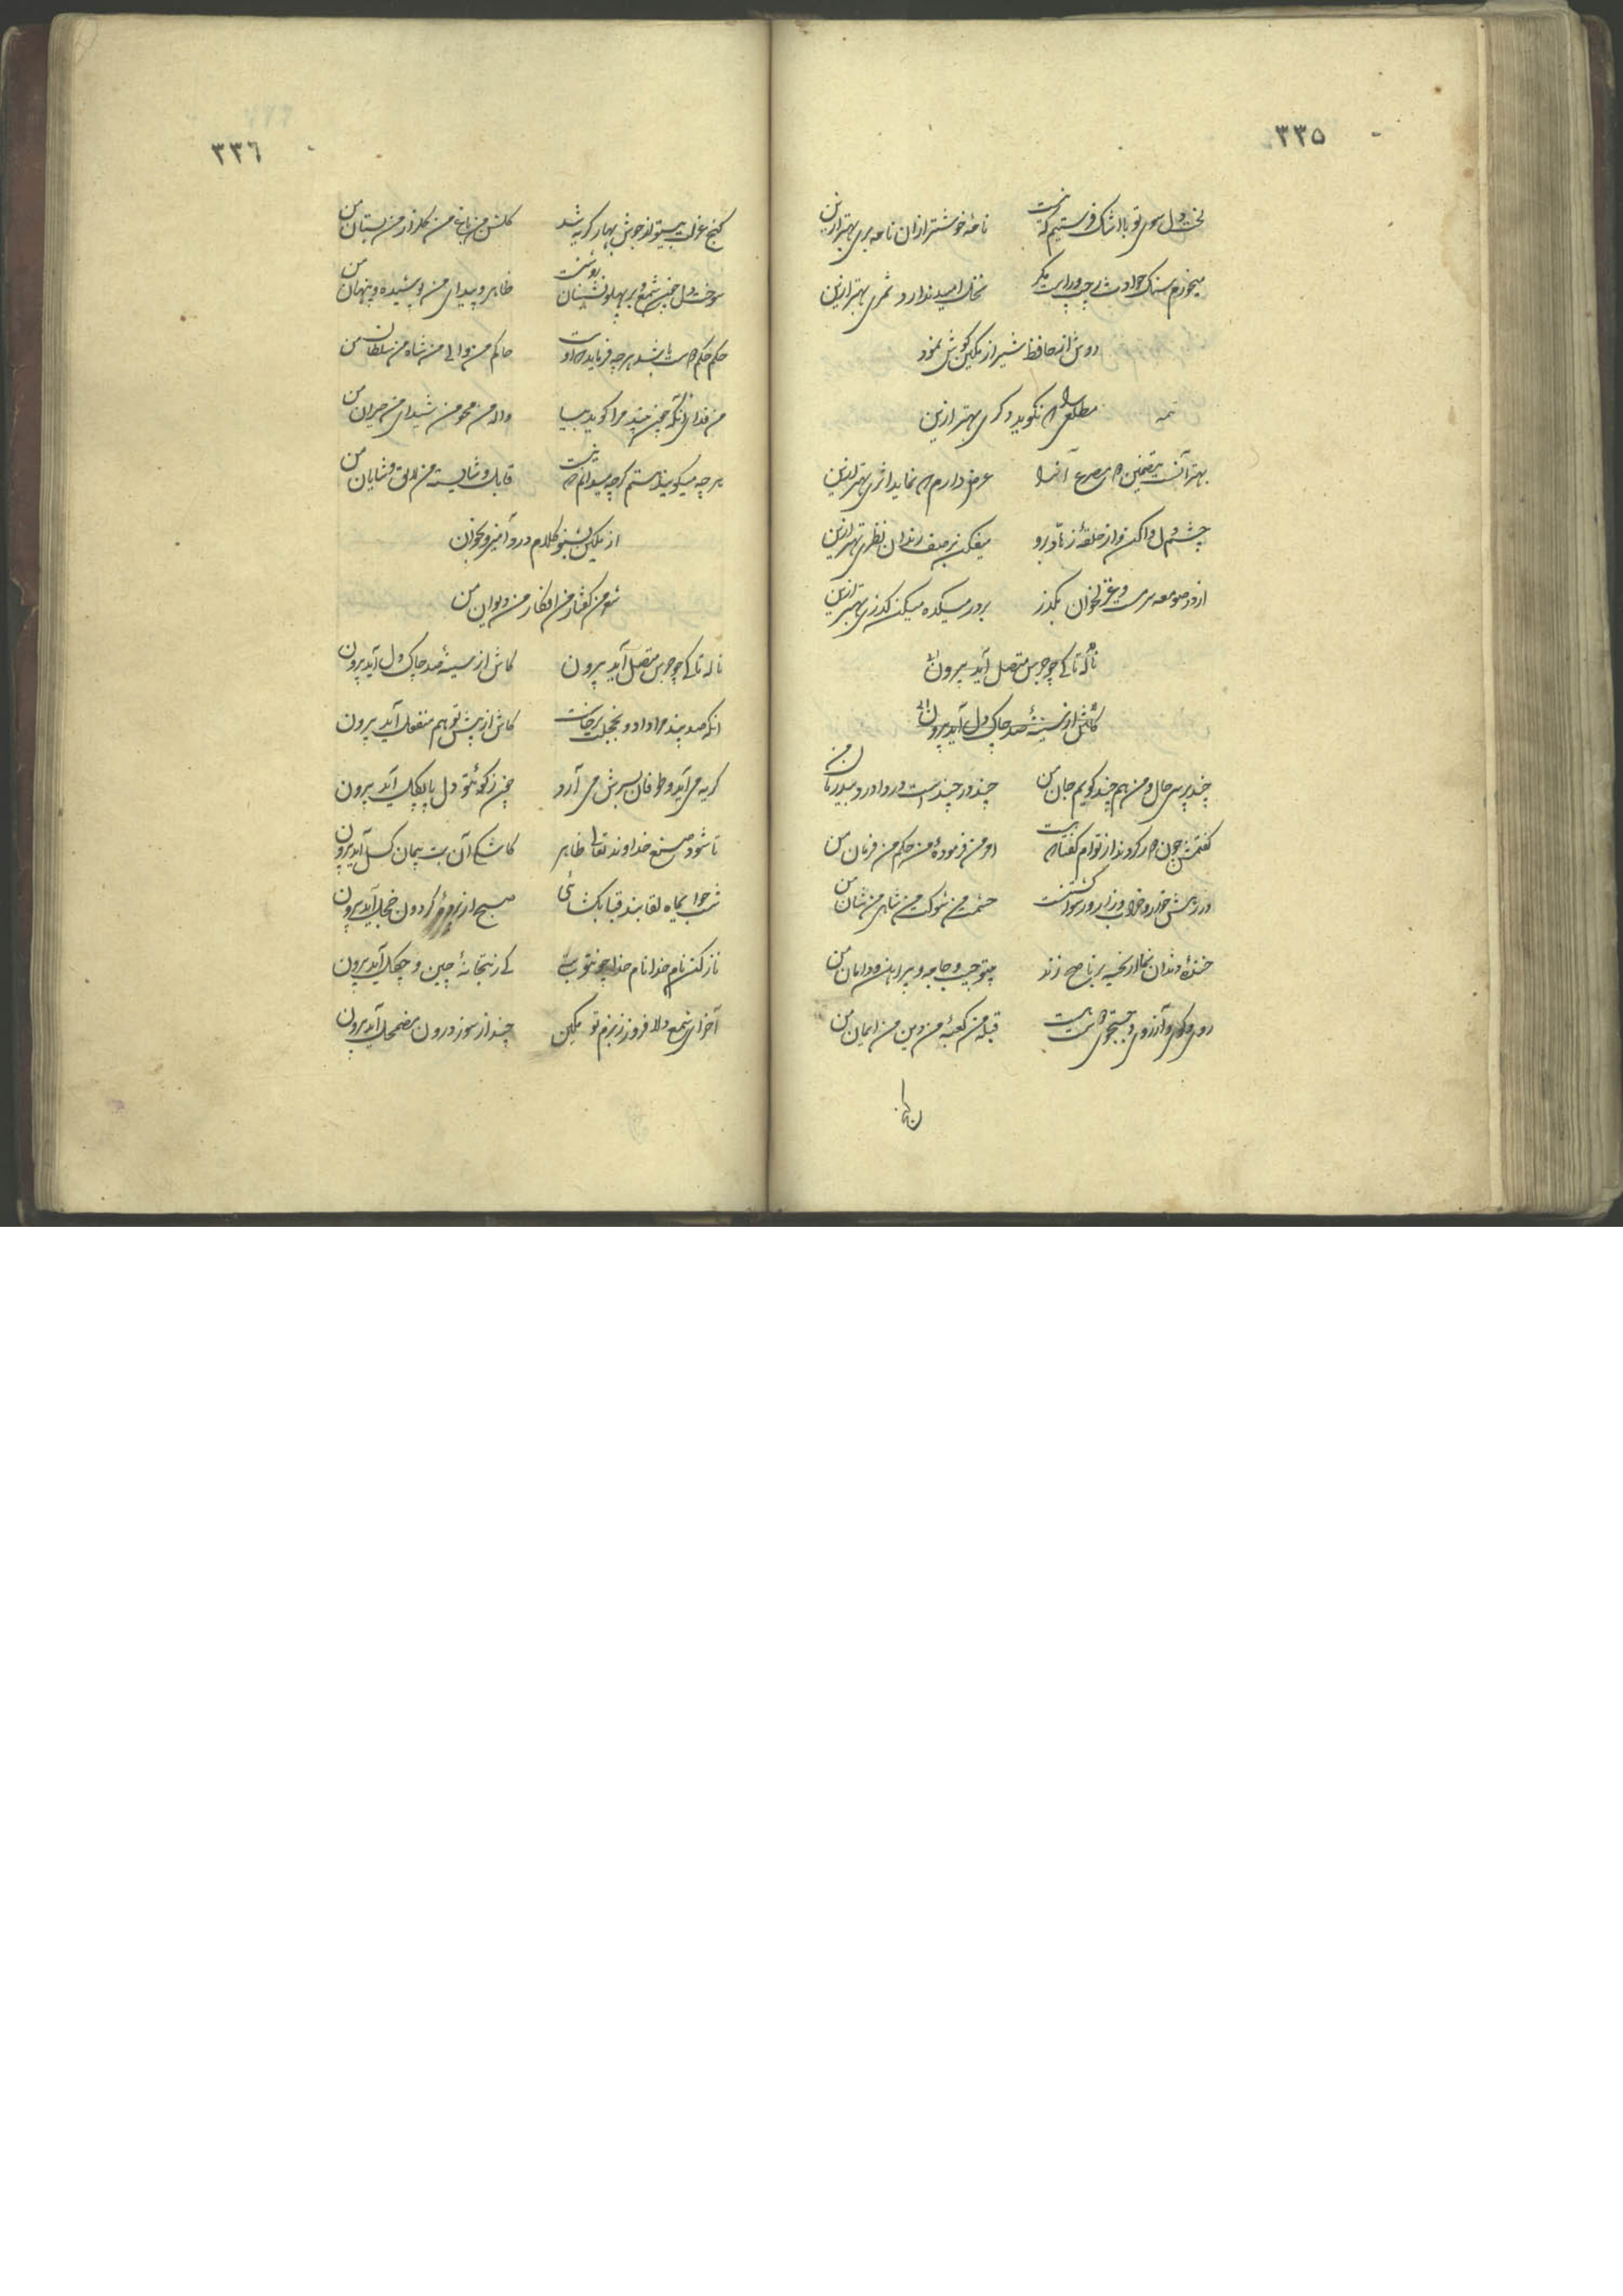 ۳۳۵
لخت دل سوی تو با اشک فرستیم که نیست نامهٔ خوشتر ازان نامه بری بهتر ازین
میخورم سنک حوادث ز چپ و راست مکر نخل امید ندارد ثمری بهتر ازین
دوش از حافظ شیراز مکین کوش نمود
مطلعی را که نکوید دکری بهتر ازین
تمه
بهتر آنست بتضمین که مصرع آنرا عرض دارم که نماید اثری بهتر ازین
چشم دل وا کن و از حلقهٔ زهاد برو میفکن بر صف رندان نظری بهتر ازین
از در صومعه سرمست و غزلخوان بکذر بر در میکده میکن کذری بهتر ازین
ناله تا کی چو جرس متصل آید بیرون
کاش از سینهٔ صد چاک دل آید بیرون
چند پرسی حال و من هم چند کویم جان من چند در چندست درد و درد بیدرمان من
کفتمش چون کرد از توام کفتا که هست امر من فرمودهٔ من حکم من فرمان من
در رهش خوار و خراب و زار و رسوا کشتنست حشمت من شوکت من شاهی من شان من
خندهٔ دندان نما از بخیه بر ناصح زند جیب و جامه و پیراهن و دامان من
روی و کوی و آرزوی و جستجوی قبلهٔ من کعبهٔ من دین من ایمان من
۳۳٦
کنج عزلت بیتو از جوش بهار کریه شد کلشن من باغ من کلزار من بستان من
سوخت دل چون شمع و بر پهلونشینان ظاهر و پیدای من پوشیده و پنهان من
حکم حکم باشد هر چه فرماید که او حاکم من والی من شاه من سلطان من
من فدای آنکه چون بیند مرا کوید بیا واله من محو من شیدای من حیران من
هر چه میکویند هستم کر چه میدانم که نیست قابل و شایستهٔ من لایق و شایان من
از مکین بشنو کلام درد آمیز و بخوان
شعر من کفتار من افکار من دیوان من
ناله تا کی چو جرس متصل آید بیرون کاش از سینهٔ صد چاک دل آید بیرون
آنکه صد پند مرا داد و بخجلت برخاست کاش از پیش تو هم منفعل آید بیرون
کریه می آید و طوفان بسرش می آرد چون ز کوی تو دل پا بکل آید بیرون
تا شود صنع خداوند تعالی ظاهر کاشکی آن بت پیمان کسل آید بیرون
شب چو ای ماه لقا بند قبا بکشائی صبح از کردون خجل آید بیرون
ناز کن نام خدا نام خدا چو تو بت کی ز بتخانهٔ چین و چکل آید بیرون
آخر ای شمع دلافروز ز بزم تو مکین چند از سوز درون مضمحل آید بیرون